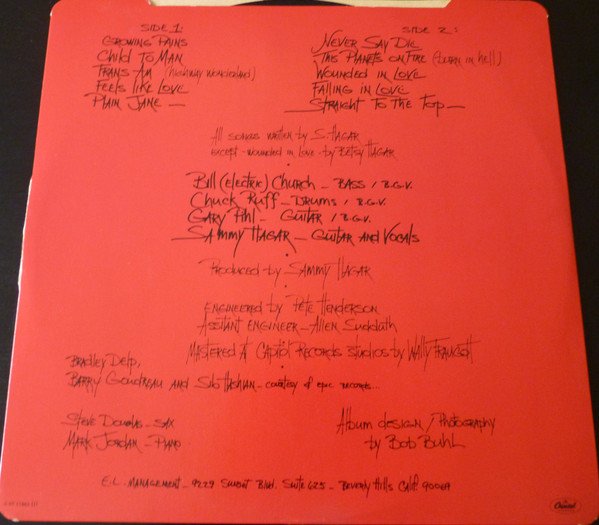 SIDE 1:
GROWING PAINS
CHILD TO MAN
TRANS AM (HIGHWAY WONDERLAND)
FEELS LIKE LOVE
PLAIN JANE —
SIDE 2:
NEVER SAY DIE
THIS PLANETS ON FIRE (BURN IN HELL)
WOUNDED IN LOVE
FALLING IN LOVE
STRAIGHT TO THE TOP —
All SONGS WRITTEN by S. HAGAR
EXCEPT - WOUNDED IN LOVE - by BETSY HAGAR
Bill (ELECTRIC) CHURCH — BASS / B.G.V.
CHUCK RUFF — DRUMS / B.G.V.
GARY PIHL — GUITAR / B.G.V.
SAMMY HAGAR — GUITAR AND VOCALS
PRODUCED by SAMMY HAGAR
ENGINEERED by PETE HENDERSON
ASSITANT ENGINEER — ALLEN SUDDUTH
MASTERED AT CAPITOL RECORDS STUDIOS by WALLY TRAUGOTT
BRADLEY DELP,
BARRY GOUDREAU AND SIB HASHIAN — COURTESY OF EPIC RECORDS...
STEVE DOUGLAS — SAX
MARK JORDAN — PIANO
Album DESIGN / PHOTOGRAPHY
by BOB BUHL
E.L. MANAGEMENT — 9229 SUNSET BLVD. SUITE 625 — BEVERLY HILLS CALIF. 90069
Capitol